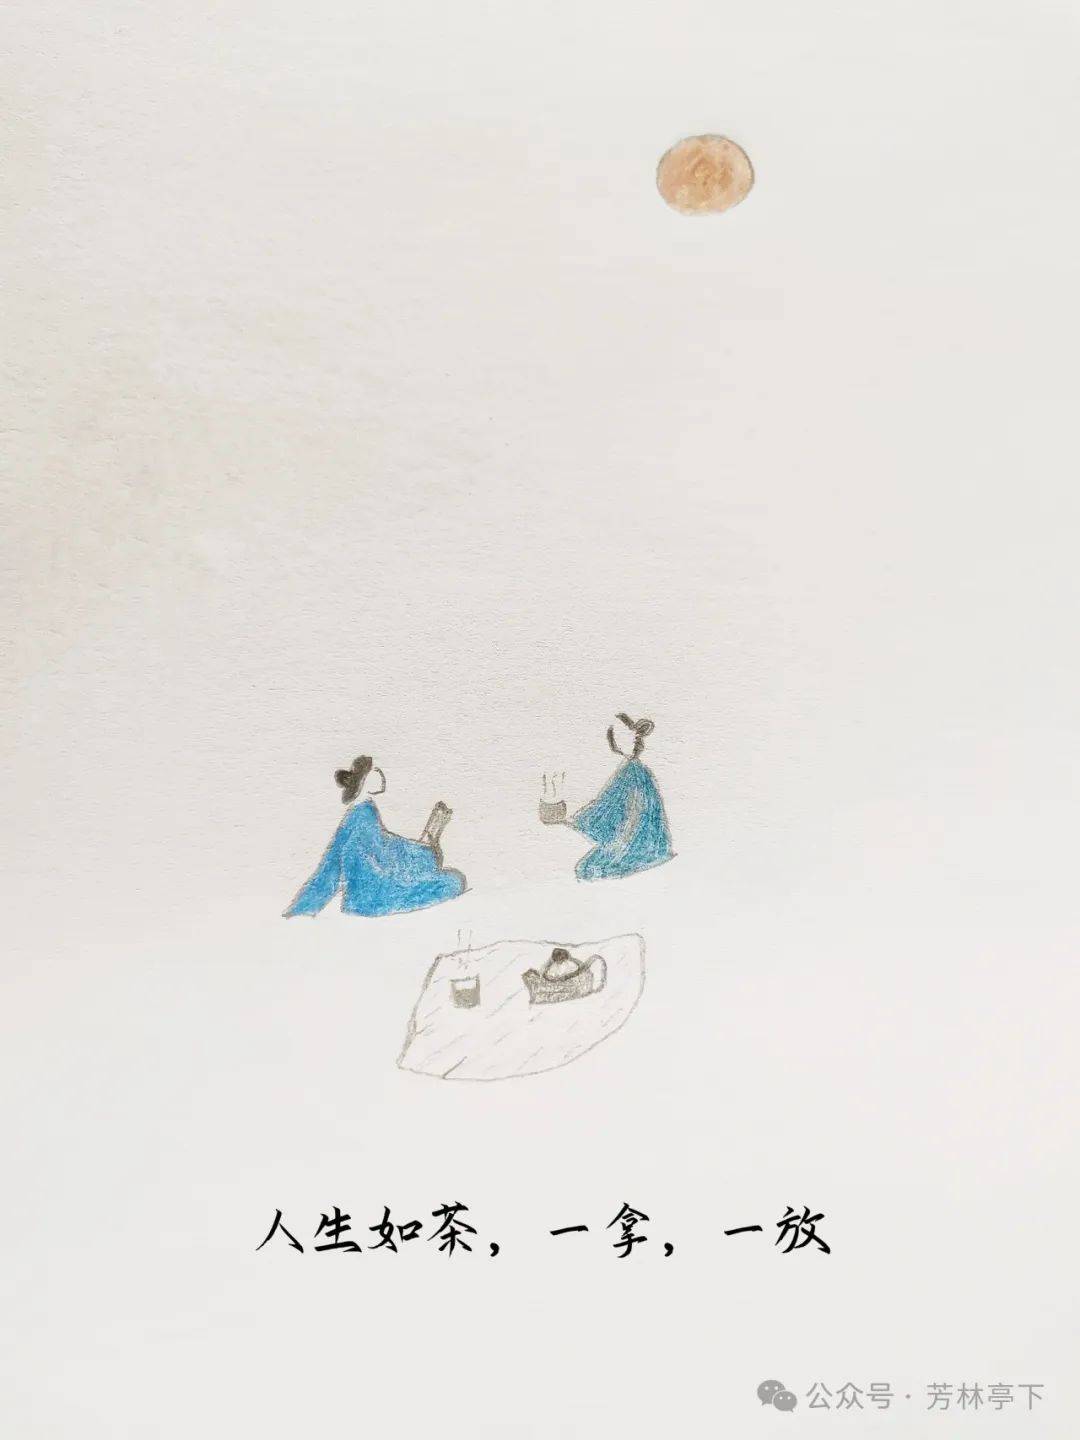 人生如茶，一拿，一放
公众号·芳林亭下